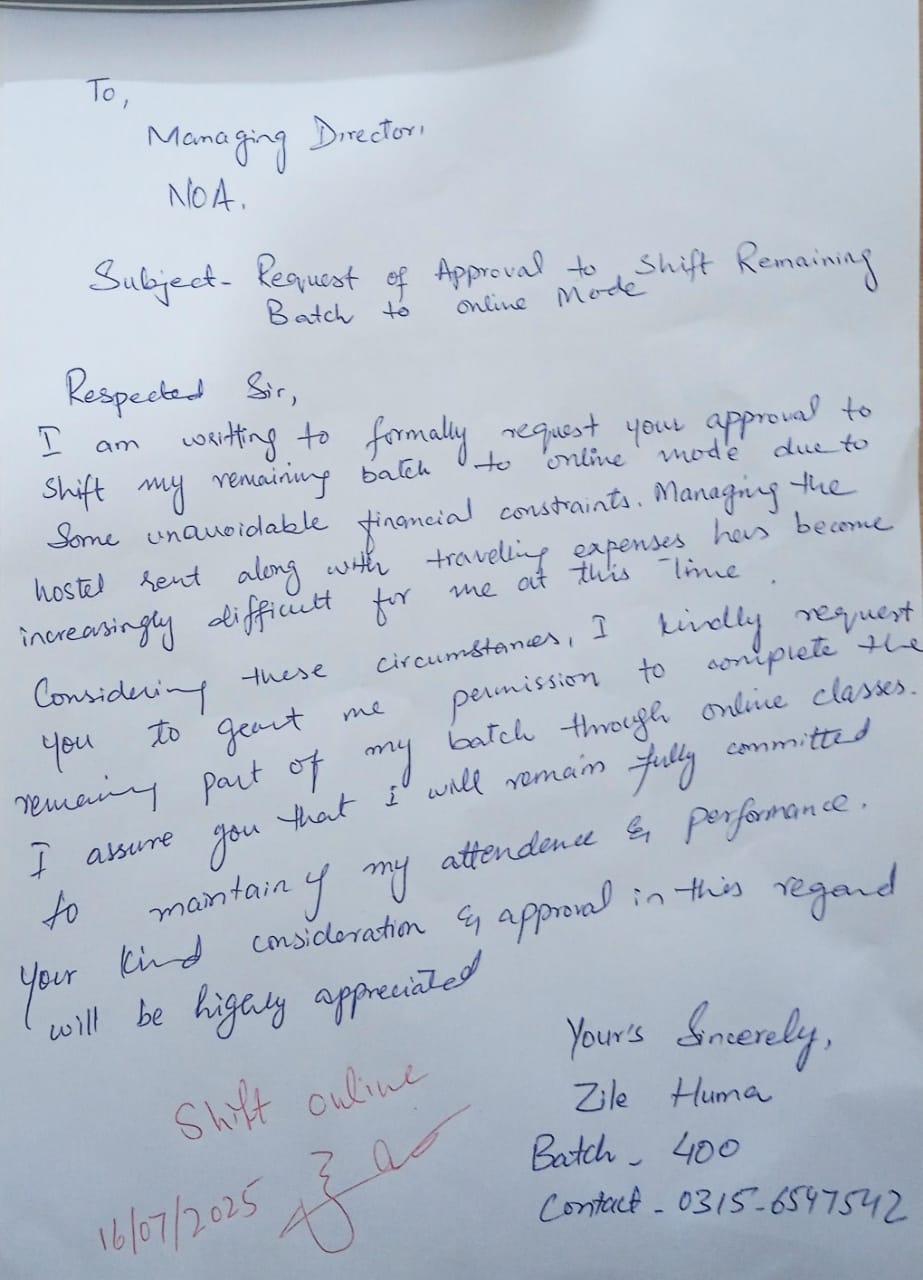 To,
Managing Director,
NOA.
Subject- Request of Approval to Shift Remaining
Batch to online Mode
Respected Sir,
I am writting to formally request your approval to
shift my remaining batch to online mode due to
Some unavoidable financial constraints. Managing the
hostel rent along with traveling expenses has become
increasingly difficult for me at this time.
Considering these circumstances, I kindly request
you to geant me permission to complete the
remaining part of my batch through online classes.
I assure you that I will remain fully committed
to maintain my attendence & performance.
Your kind consideration & approval in this regard
will be highly appreciated
Your's Sincerely,
Zile Huma
Batch - 400
Contact - 0315-6597542
Shift online
16/07/2025